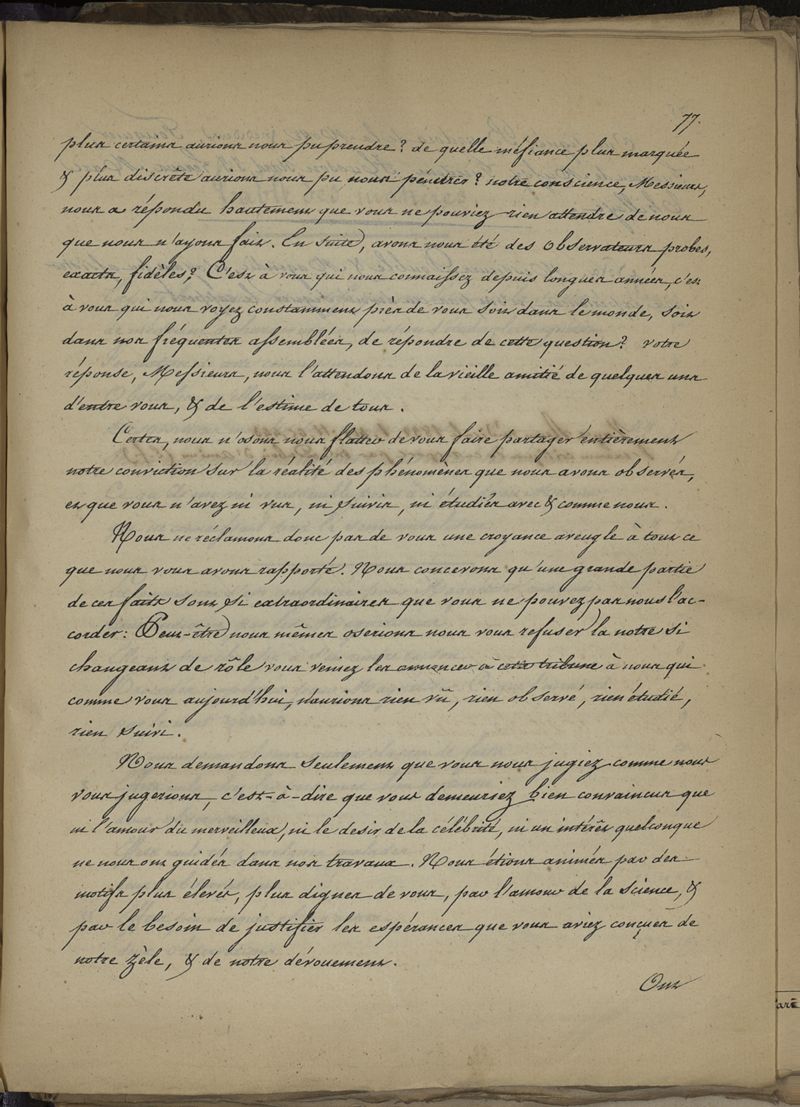 77.
plus certains aurions nous pu prendre? de quelle méfiance plus marquée
& plus discrète aurions nous pu nous pénétrer? notre conscience, Messieurs,
nous a répondu hautement que vous ne pouviez rien attendre de nous
que nous n'ayons fait. En suite, avons nous été des observateurs probes,
exacts, fidèles? C'est à vous qui nous connaissez depuis longues années, c'est
à vous qui nous voyez constamment près de vous soit dans le monde, soit
dans nos fréquentes assemblées, de répondre de cette question? votre
réponse, Messieurs, nous l'attendons de la vieille amitié de quelques uns
d'entre vous, & de l'estime de tous.
Certes, nous n'osons nous flatter de vous faire partager entièrement
notre conviction sur la réalité des phénomènes que nous avons observés,
et que vous n'avez ni vus, ni suivis, ni étudiés avec & comme nous.
Nous ne réclamons donc pas de vous une croyance aveugle à tous ce
que nous vous avons rapporté. Nous concevons qu'une grande partie
de ces faits sont si extraordinaires que vous ne pouvez pas nous l'ac-
corder: Peut-être nous mêmes oserions nous vous refuser la notre si
changeant de rôle vous veniez les annoncer à cette tribune à nous qui
comme vous aujourd'hui, n'aurions rien vû, rien observé, rien étudié,
rien suivi.
Nous demandons seulement que vous nous jugiez comme nous
vous jugerions, c'est-à-dire que vous demeuriez bien convaincus que
ni l'amour du merveilleux, ni le desir de la célébrité, ni un intérêt quelconque
ne nous ont guidés dans nos travaux. Nous étions animés par des
motifs plus élevés, plus dignes de vous, par l'amour de la science, &
par le besoin de justifier les espérances que vous aviez conçues de
notre zèle, & de notre dévouement.
Ont